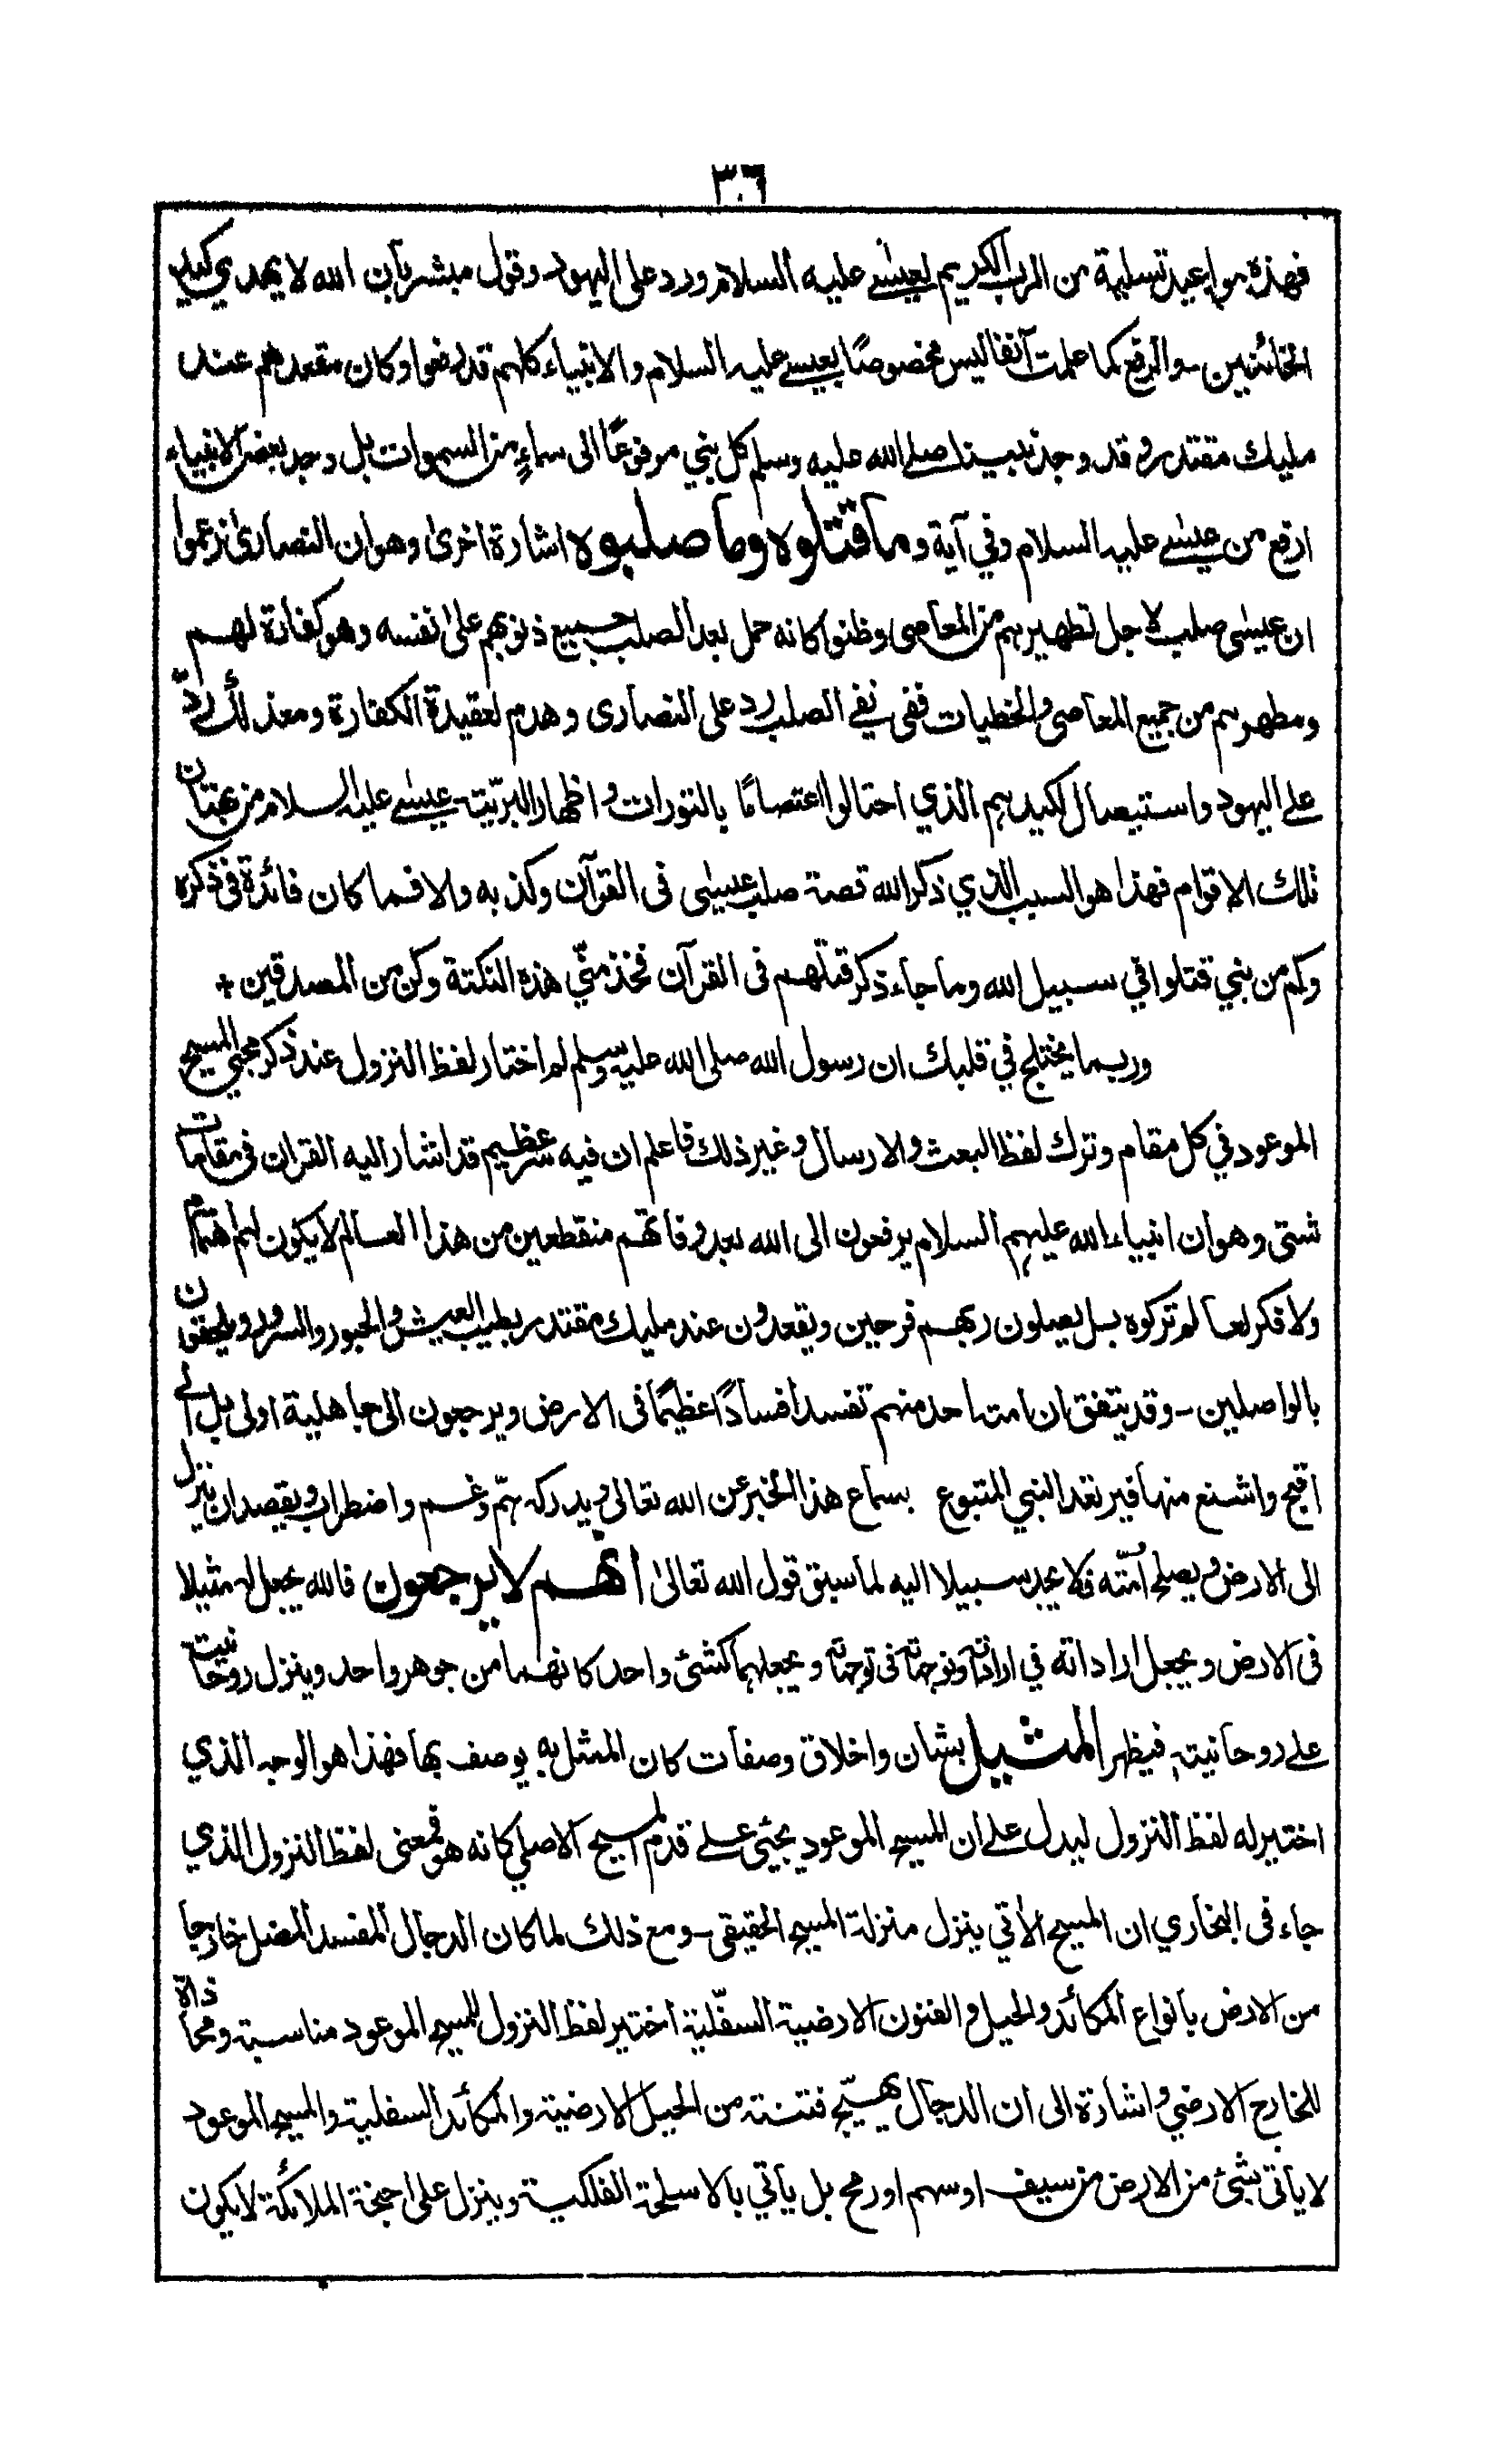 ٣٠٦
فهذه مواعيد تسلية من الرب الكريم لعيسى عليه السلام ورد على اليهود وقول مبشر بان الله لا يهدي كيد
الخائنين - والرفع كما علمت آنفا ليس مخصوصًا بعيسى عليه السلام والانبياء كلهم قد رفعوا وكان مقعدهم عند
مليك مقتدر وقد وجد نبينا صلى الله عليه وسلم كل نبي مرفوعًا الى سماءٍ من السموات بل وجد بعض الانبياء
ارفع من عيسى عليه السلام وفي آية وما قتلوه وما صلبوه اشارة اخرى وهو ان النصارى زعموا
ان عيسى صلب لاجل تطهيرهم من المعاصي وظنوا كانه حمل بعد الصلب جميع ذنوبهم على نفسه وهو كفارة لهم
ومطهرهم من جميع المعاصي والخطيات ففي نفي الصلب رد على النصارى وهدم لعقيدة الكفارة ومعذلك ردّ
على اليهود واستيصال لكيدهم الذي احتالوا اعتصامًا بالتورات واظهار البريّت عيسى عليه السلام من بهتان
تلك الاقوام فهذا هو السبب الذي ذكر الله قصة صلب عيسى في القرآن وكذبه والا فما كان فائدة في ذكره
وكم من نبي قتلوا في سبيل الله وما جاء ذكر قتلهم في القرآن فخذ منّي هذه النكتة وكن من المصدقين +
وربما يختلج في قلبك ان رسول الله صلى الله عليه وسلم لم اختار لفظ النزول عند ذكر مجئ المسيح
الموعود في كل مقام وترك لفظ البعث والارسال وغير ذلك فاعلم ان فيه سر عظيم قد اشار اليه القران في مقامات
شتى وهو ان انبياء الله عليهم السلام يرفعون الى الله بعد وفاتهم منقطعين من هذا العالم لا يكون لهم اهتمام
ولا فكر لعالم تركوه بل يصلون ربهم فرحين ويقعدون عند مليك مقتدر بطيب العيش والحبور والسرور ويلحقون
بالواصلين - وقد يتفق ان امت احد منهم تفسد افسادًا عظيمًا في الارض ويرجعون الى جاهلية اولى بل الى
اقبح واشنع منها فيرتعد النبي المتبوع بسماع هذا الخبر عن الله تعالى ويدركه همّ وغم واضطراب ويقصد ان ينزل
الى الارض ويصلح امّته فلا يجد سبيلا اليه لما سبق قول الله تعالى انهم لا يرجعون فالله يجعل له مثيلا
في الارض ويجعل اراداته في اراداته وتوجهاته في توجهاته ويجعلهما كشئ واحد كانهما من جوهر واحد وينزل روحانيت
على روحانيته فيظهر المثيل بشان واخلاق وصفات كان الممثل به يوصف بها فهذا هو الوجه الذي
اختير له لفظ النزول ليدل على ان المسيح الموعود يجئ على قدم المسيح الاصلي كانه هو فمعنى لفظ النزول الذي
جاء في البخاري ان المسيح الاتي ينزل منزلة المسيح الحقيقي - ومع ذلك لما كان الدجال المفسد المضل خارجا
من الارض بانواع المكائد والحيل والفنون الارضية السفّلية اختير لفظ النزول للمسيح الموعود مناسبة ومحاذاة
للخارج الارضي واشارة الى ان الدجال يهيّج فتنته من الحيل الارضية والمكائد السفلية والمسيح الموعود
لا يأتي بشئ من الارض من سيف او سهم او رمح بل يأتي بالاسلحة الفلكية وينزل على اجنحة الملائكة لا يكون